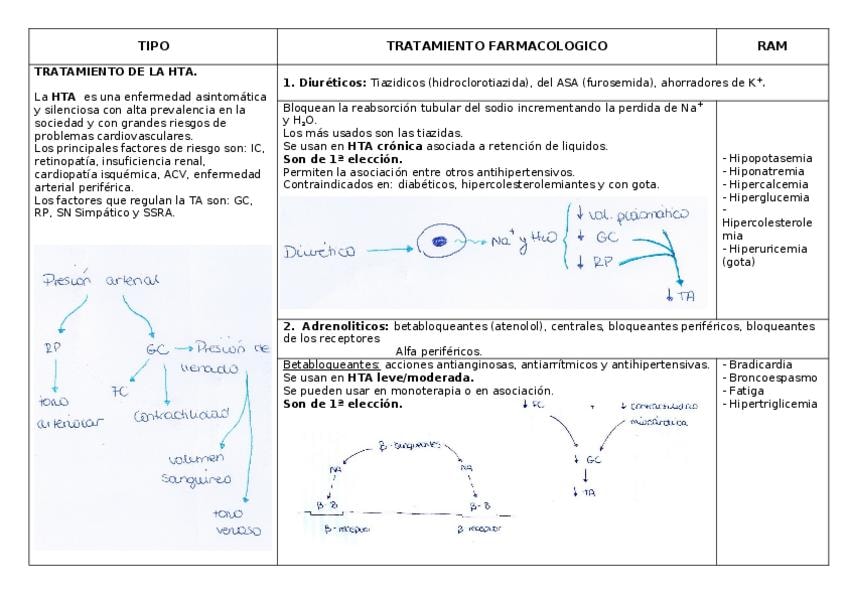 TIPO
TRATAMIENTO FARMACOLOGICO
RAM
TRATAMIENTO DE LA HTA.
La HTA es una enfermedad asintomática
y silenciosa con alta prevalencia en la
sociedad y con grandes riesgos de
problemas cardiovasculares.
Los principales factores de riesgo son: IC,
retinopatía, insuficiencia renal,
cardiopatía isquémica, ACV, enfermedad
arterial periférica.
Los factores que regulan la TA son: GC,
RP, SN Simpático y SSRA.
Presión arterial
RP
GC → Presión de
llenado
FC
tono
arteriolar
Contractilidad
volumen
sanguíneo
tono
venoso
1. Diuréticos: Tiazidicos (hidroclorotiazida), del ASA (furosemida), ahorradores de K⁺.
Bloquean la reabsorción tubular del sodio incrementando la perdida de Na⁺
y H₂O.
Los más usados son las tiazidas.
Se usan en HTA crónica asociada a retención de liquidos.
Son de 1ª elección.
Permiten la asociación entre otros antihipertensivos.
Contraindicados en: diabéticos, hipercolesterolemiantes y con gota.
Diurético → Na⁺ y H₂O
↓ vol. plasmático
↓ GC
↓ RP
↓ TA
- Hipopotasemia
- Hiponatremia
- Hipercalcemia
- Hiperglucemia
-
Hipercolesterole
mia
- Hiperuricemia
(gota)
2. Adrenoliticos: betabloqueantes (atenolol), centrales, bloqueantes periféricos, bloqueantes
de los receptores
Alfa periféricos.
Betabloqueantes: acciones antianginosas, antiarrítmicos y antihipertensivas.
Se usan en HTA leve/moderada.
Se pueden usar en monoterapia o en asociación.
Son de 1ª elección.
↓ FC + ↓ contractilidad
miocárdica
↓ GC
↓ TA
β-bloqueantes
NA
NA
β-B
β-B
β-receptor
β receptor
- Bradicardia
- Broncoespasmo
- Fatiga
- Hipertriglicemia